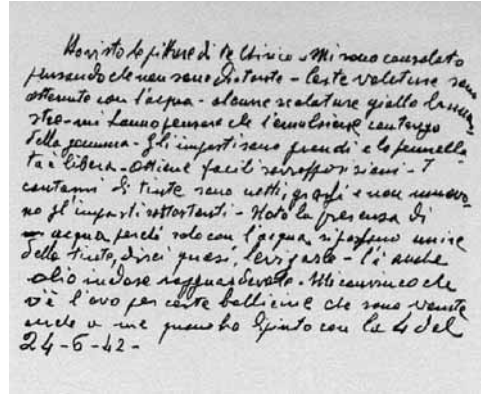 Ho visto le pitture di De Chirico - Mi sono consolato
pensando che non sono distante - Certe velature sono
ottenute con l'acqua - alcune scolature giallo brunas-
stre - mi fanno pensare che l'emulsione contenga
della gomma - Gli impasti sono grandi e la pennella
ta è libera - Ottiene facili sovrapposizioni - I
contorni di tinte sono netti, grassi e non muovo-
no gl'impasti sottostanti - Noto la presenza di
acqua perché solo con l'acqua si possono unire
delle tinte, direi quasi, levigarle - C'è anche
olio in dose ragguardevole - Mi convinco che
v'è l'uovo per certe bollicine che sono venute
anche a me quando dipinto con la 4 del
24-6-42-